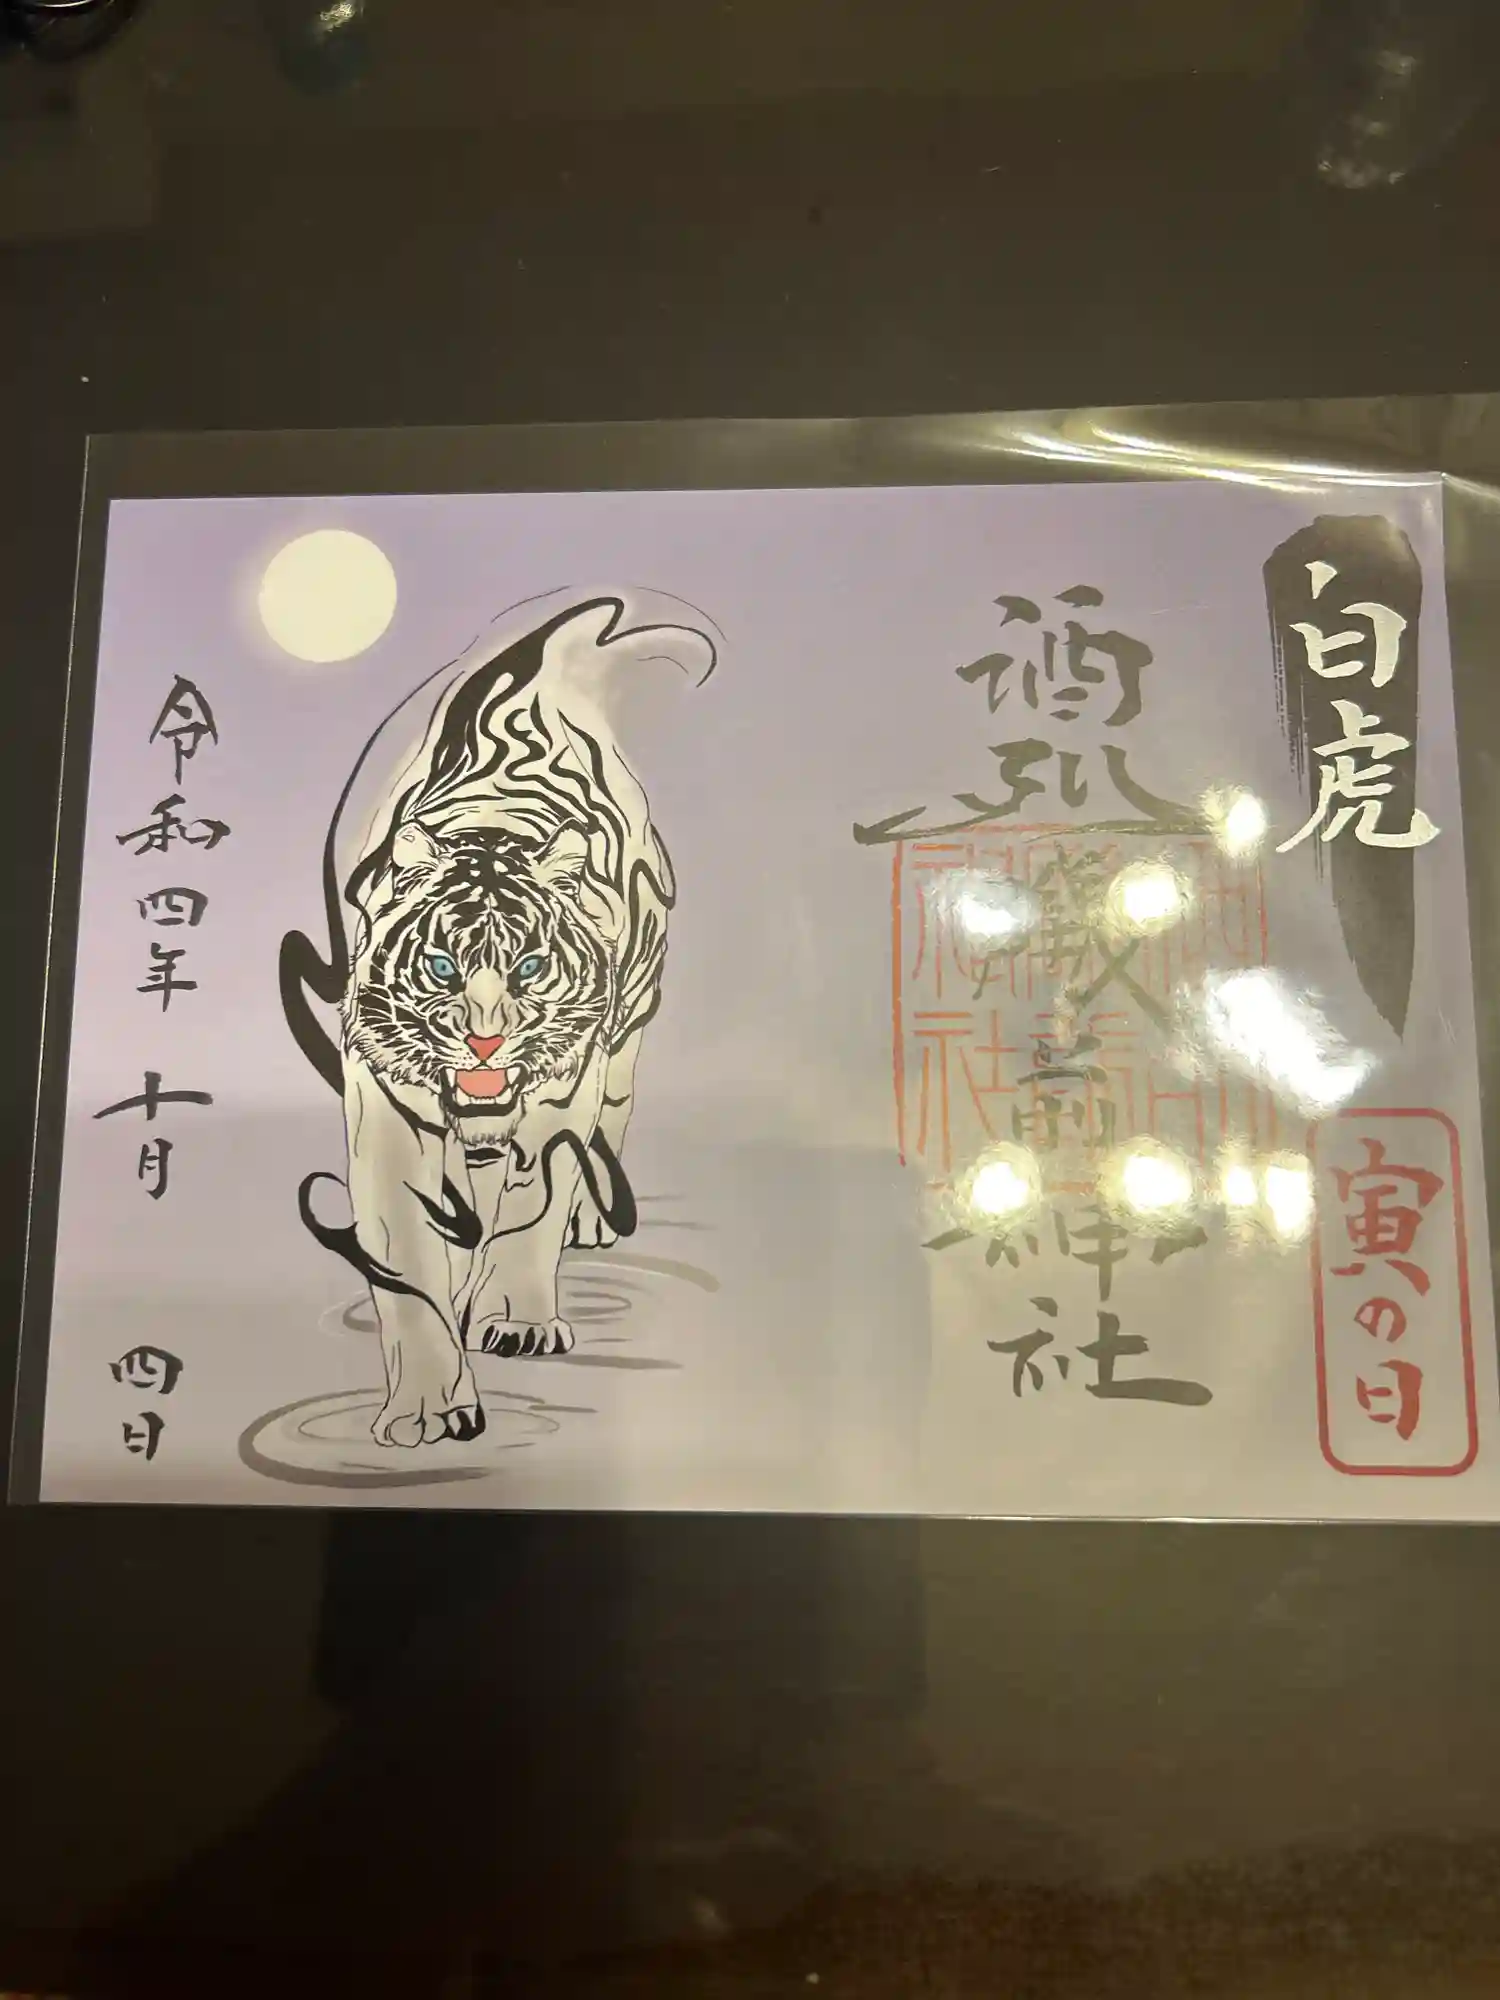 白虎
寅の日
酒列礒前神社
令和四年 十月 四日